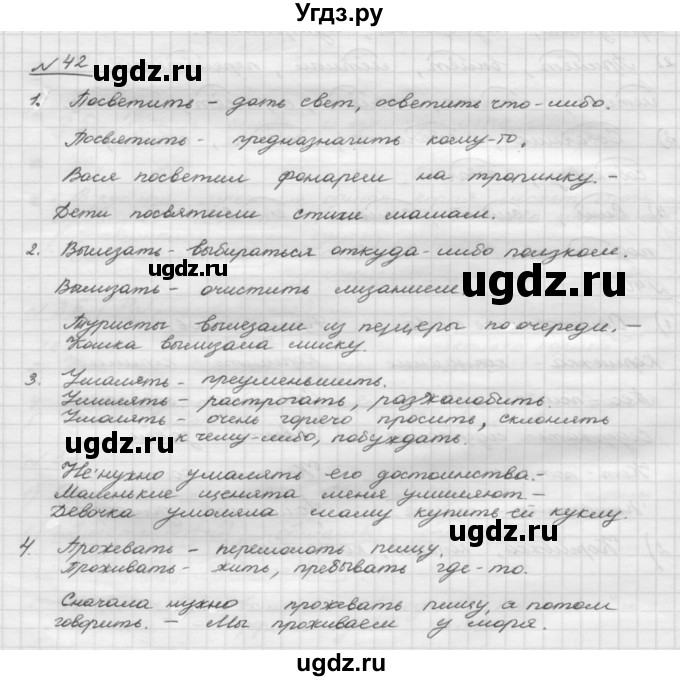 Угдз.ру
№ 42
ugdz.ru
1. Посветить - дать свет, осветить что-либо.
Посвятить - предназначить кому-то.
ugdz.ru
Вася посветил фонарем на тропинку. -
Дети посвятили стихи мамам.
2. Вылезать - выбираться откуда-либо ползком.
ugdz.ru
ugdz.ru
Вылизать - очистить лизанием
Туристы вылезали из пещеры по очереди. -
Кошка вылизала миску.
3. Умалять - преуменьшить.
Умилять - растрогать, разжалобить.
ugdz.ru
Умолять - очень горячо просить, склонять
к чему-либо, побуждать.
ugdz.ru
Не нужно умалять его достоинства. -
Маленькие щенята меня умиляют -
Девочка умоляла маму купить ей куклу.
ugdz.ru
4. Прожевать - перемолоть пищу.
Проживать - жить, пребывать где-то.
ugdz.ru
Сначала нужно прожевать пищу, а потом
говорить. - Мы проживаем у моря.
ugdz.ru
ugdz.ru